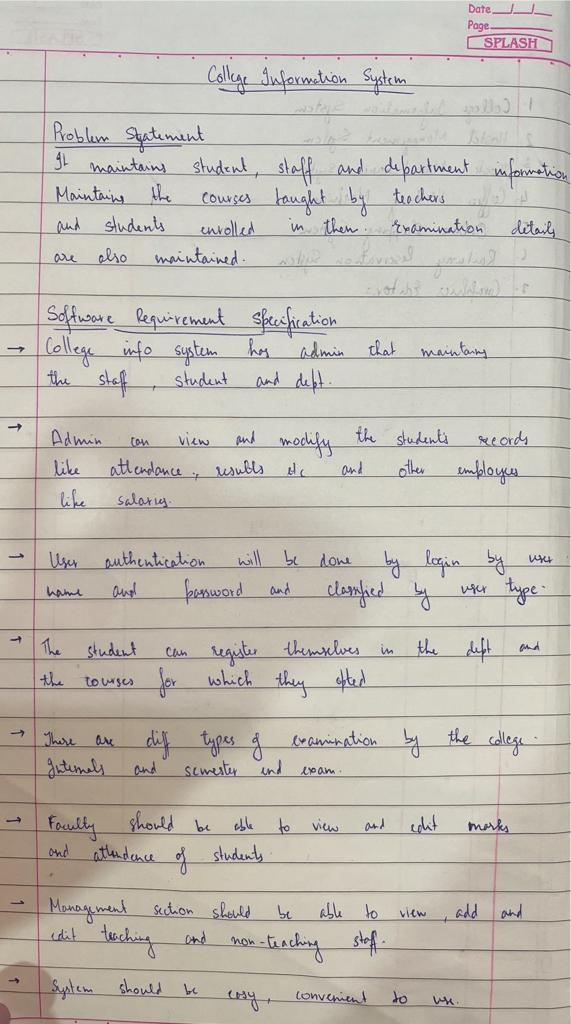 Date __/__/__
Page ____
SPLASH
College Information System
Problem Statement
It maintains student, staff and department information
Maintains the courses taught by teachers
and students enrolled in them. Examination details
are also maintained.
Software Requirement Specification
→ College info system has admin that maintains
the staff, student and dept.
→ Admin can view and modify the student's records
like attendance, results etc and other employees
like salaries.
→ User authentication will be done by login by user
name and password and classified by user type.
→ The student can register themselves in the dept and
the courses for which they opted
→ There are diff types of examination by the college.
Internals and semester end exam.
→ Faculty should be able to view and edit marks
and attendence of students.
→ Management section should be able to view, add and
edit teaching and non-teaching staff.
→ System should be easy, convenient to use.